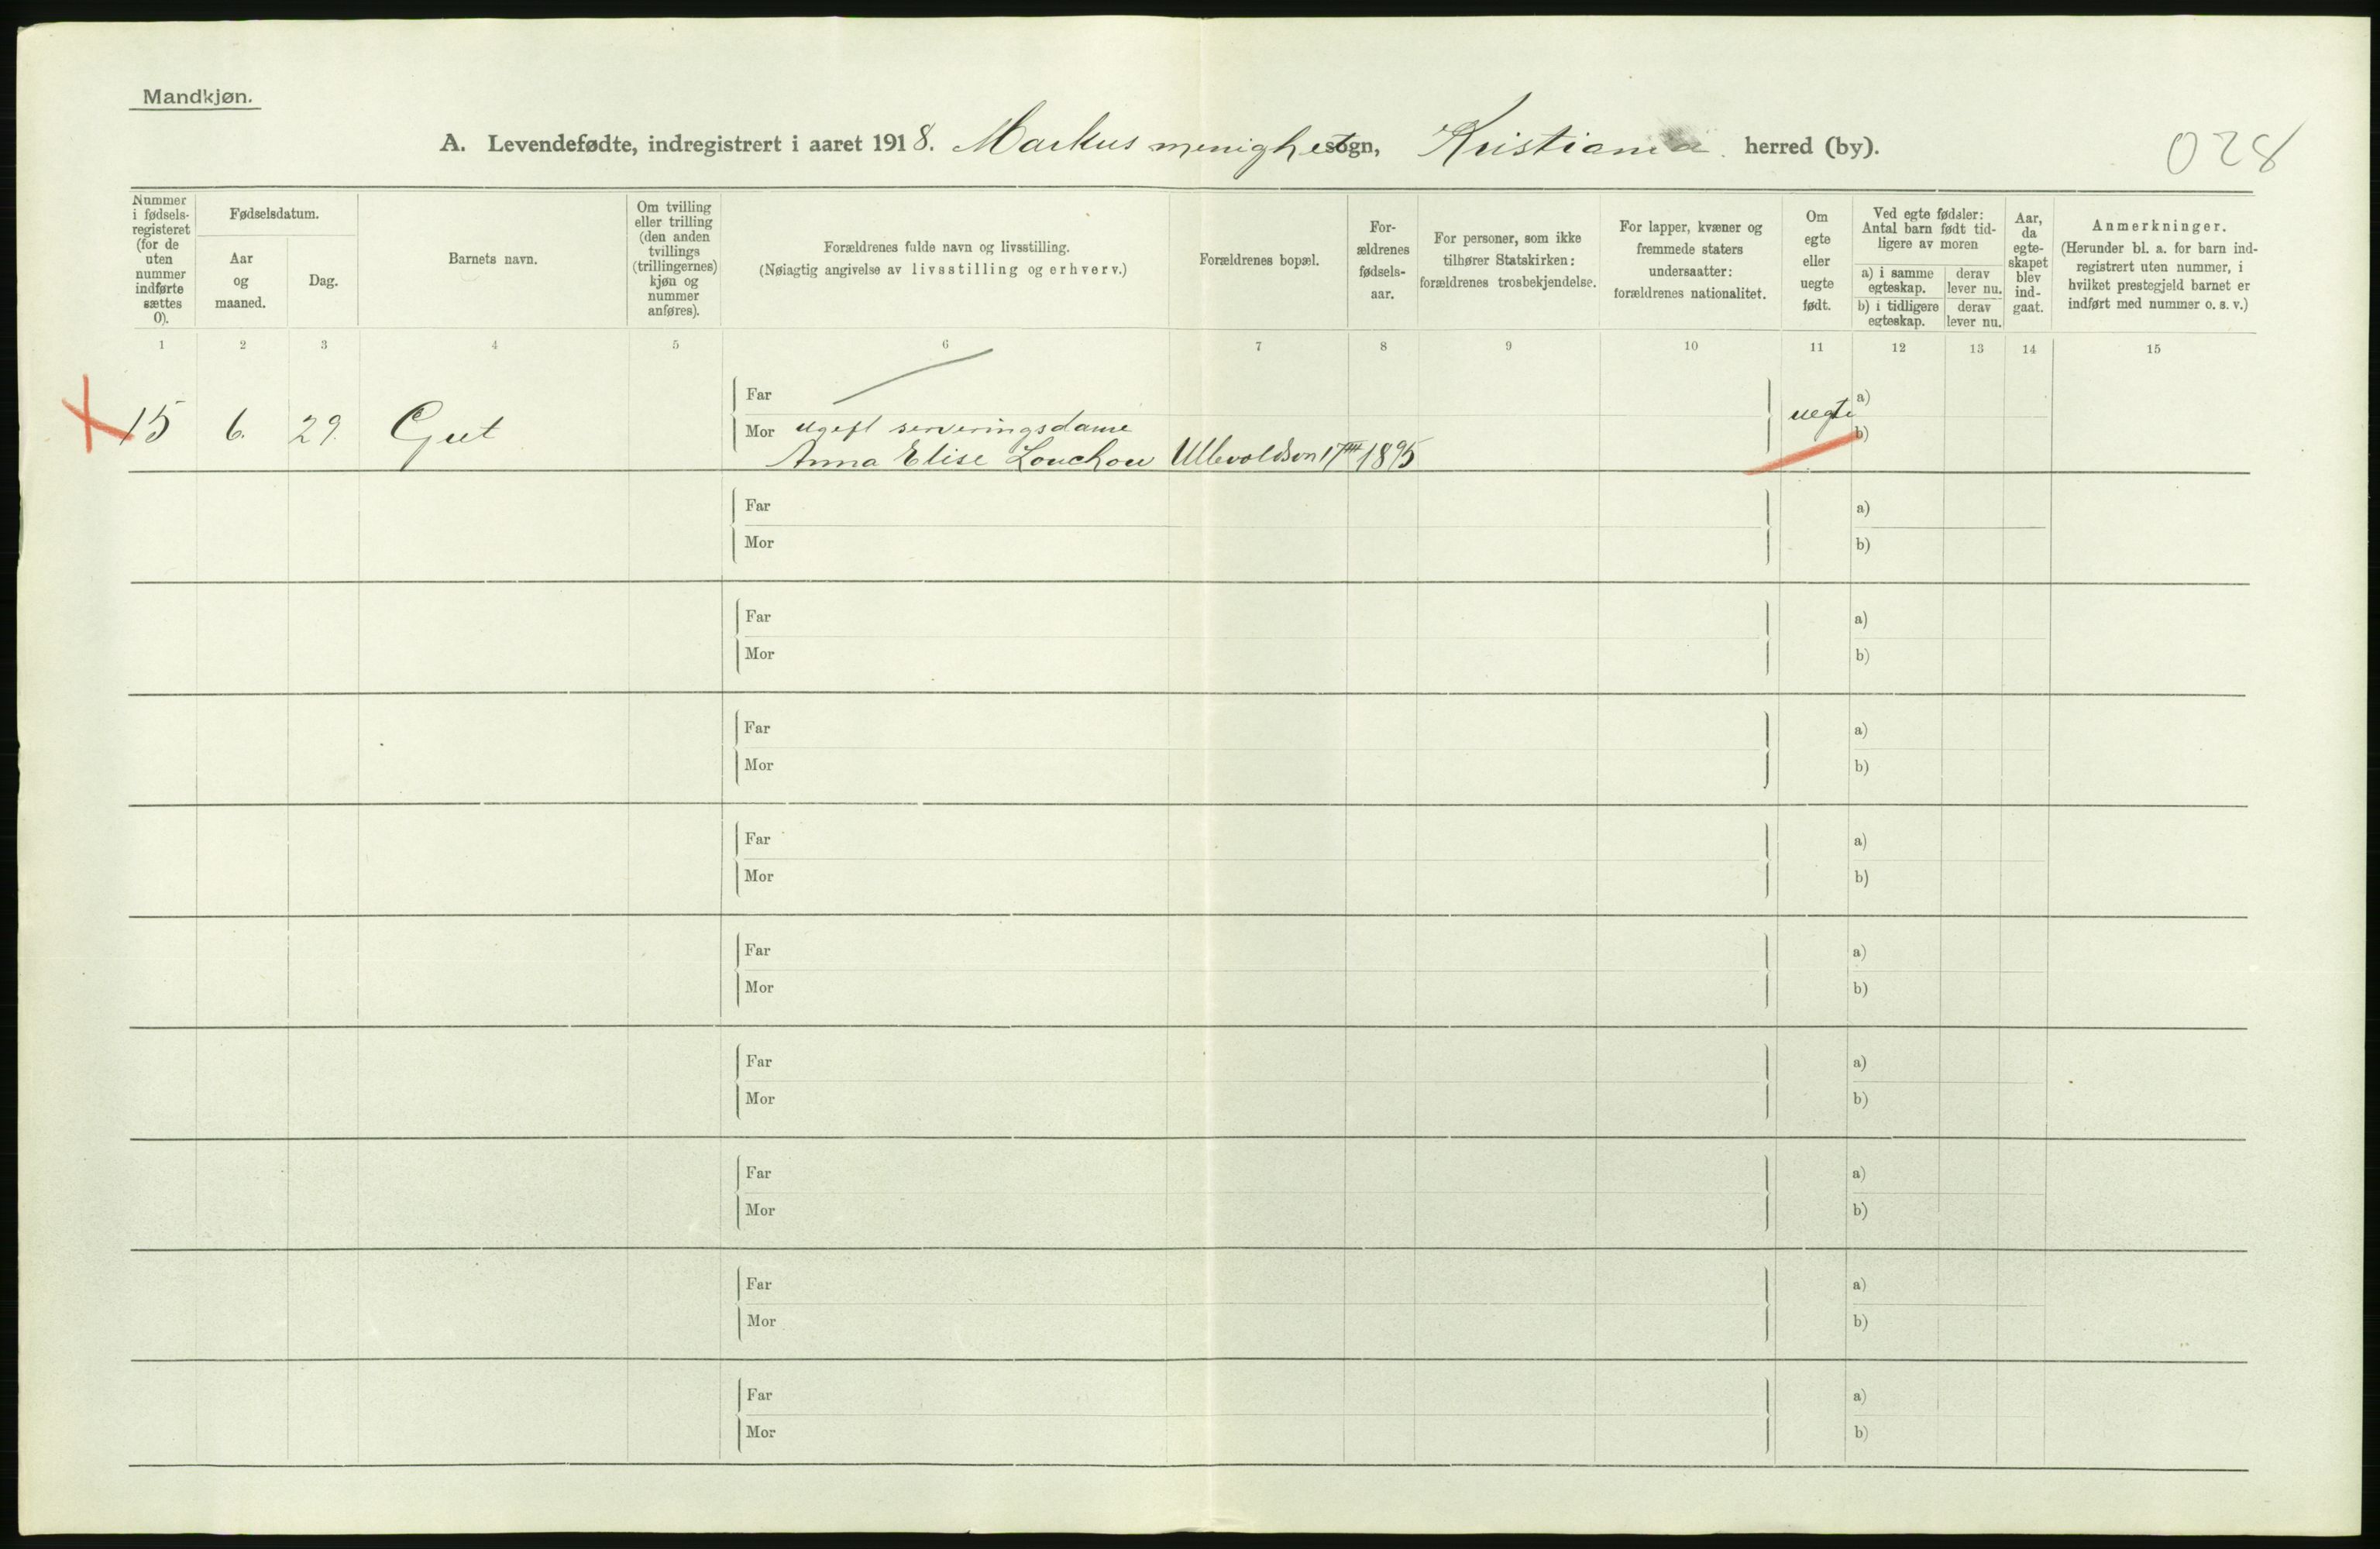 Mandkjøn.
A. Levendefødte, indregistrert i aaret 1918. Markus menighet sogn, Kristiania herred (by).
028
Nummer i fødsels-registeret (for de uten nummer indførte sættes 0).
Fødselsdatum.
Aar og maaned.
Dag.
Barnets navn.
Om tvilling eller trilling (den anden tvillings (trillingernes) kjøn og nummer anføres).
Forældrenes fulde navn og livsstilling.
(Nøiagtig angivelse av livsstilling og erhverv.)
Forældrenes bopæl.
For-ældrenes fødsels-aar.
For personer, som ikke tilhører Statskirken: forældrenes trosbekjendelse.
For lapper, kvæner og fremmede staters undersaatter: forældrenes nationalitet.
Om egte eller uegte født.
Ved egte fødsler: Antal barn født tid-ligere av moren
a) i samme egteskap.
derav lever nu.
b) i tidligere egteskap.
derav lever nu.
Aar, da egte-skapet blev ind-gaat.
Anmerkninger.
(Herunder bl. a. for barn ind-registrert uten nummer, i hvilket prestegjeld barnet er indført med nummer o. s. v.)
1 2 3 4 5 6 7 8 9 10 11 12 13 14 15
Far a)
15 6. 29. Gut Mor ugift serveringsdame uegte b)
Anna Elise Ullevoldsvn 17 1895
Far a)
Mor b)
Far a)
Mor b)
Far a)
Mor b)
Far a)
Mor b)
Far a)
Mor b)
Far a)
Mor b)
Far a)
Mor b)
Far a)
Mor b)
Far a)
Mor b)